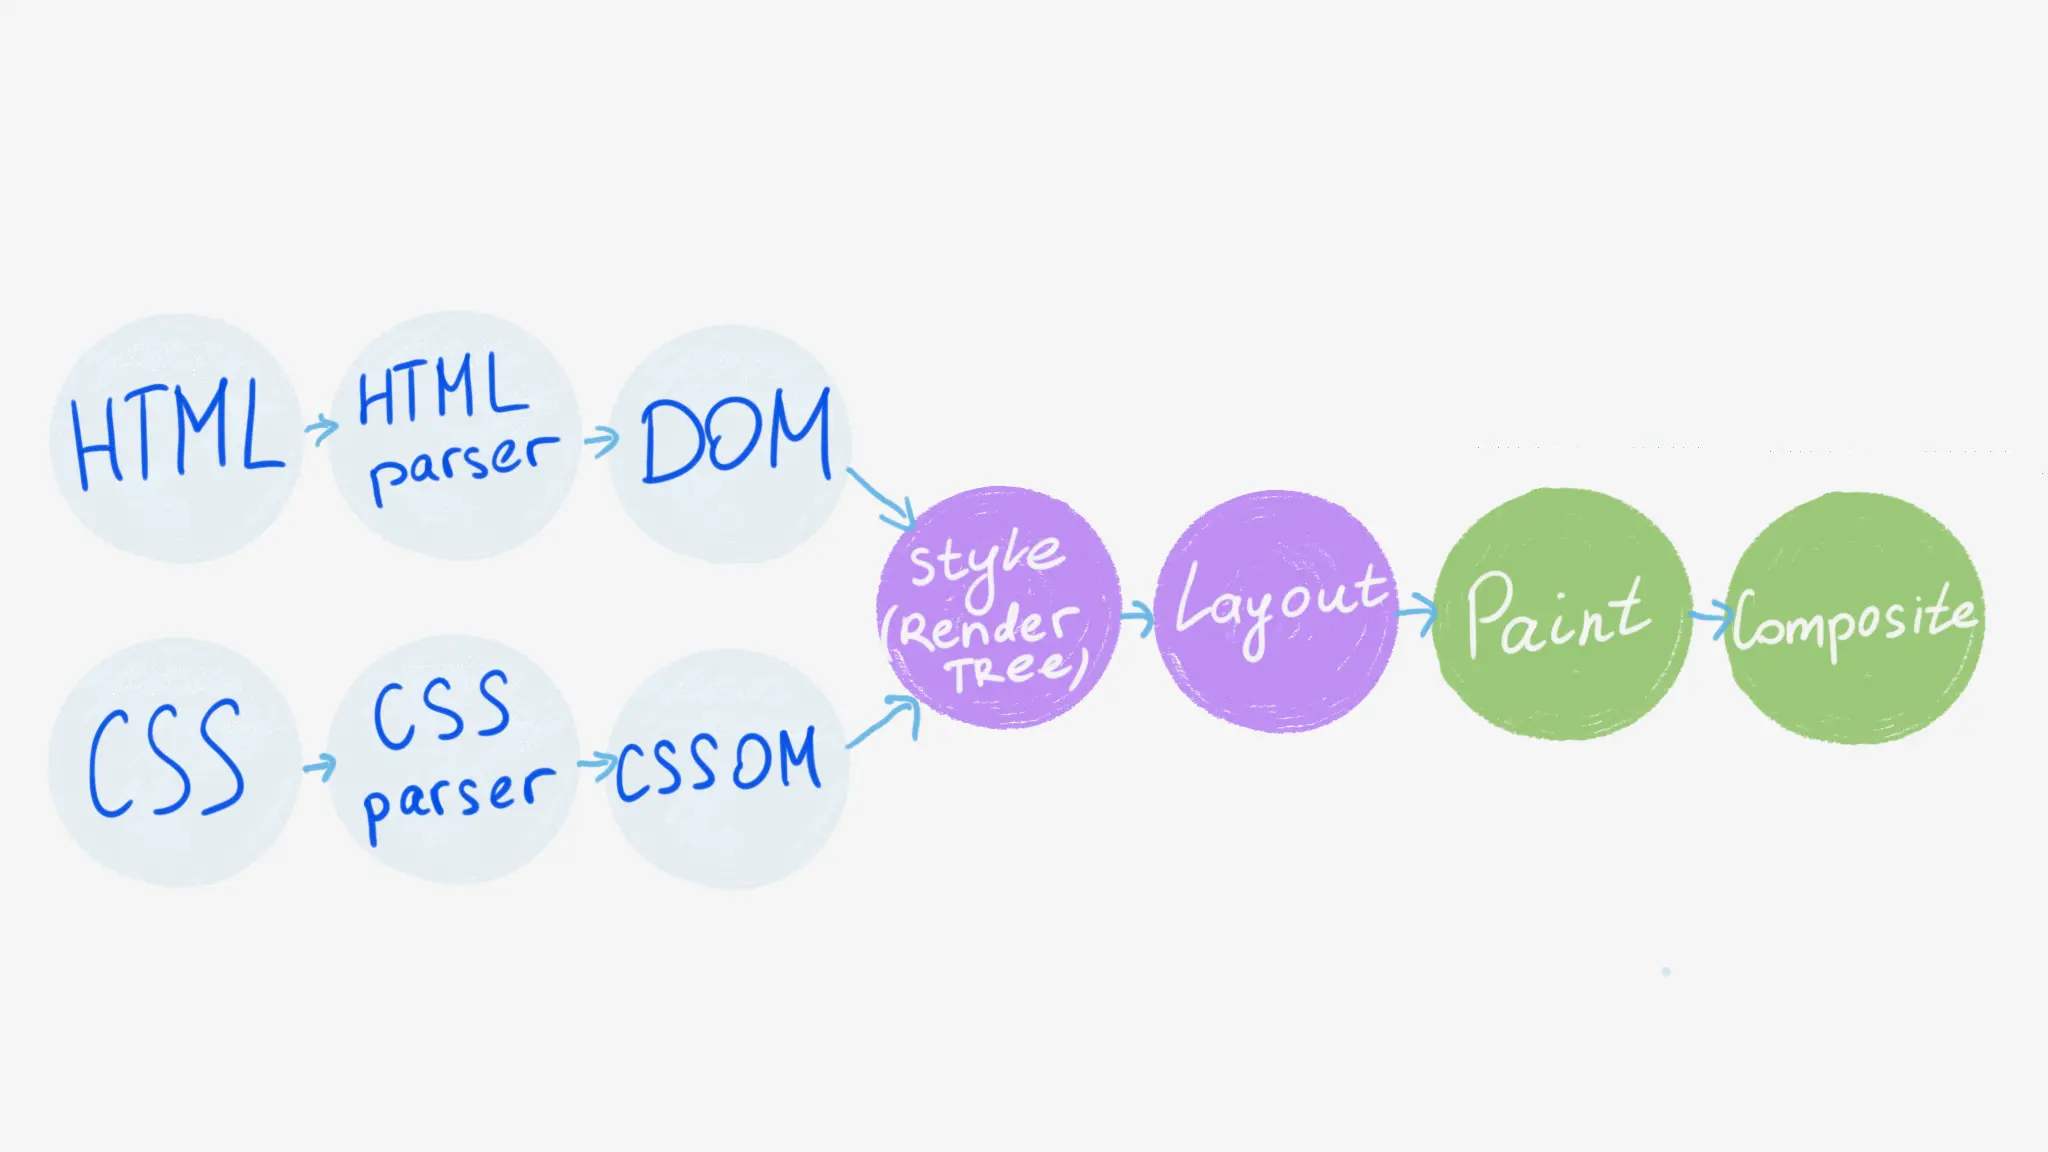 HTML
HTML
parser
DOM
CSS
CSS
parser
CSSOM
Style
(Render
TRee)
Layout
Paint
Composite